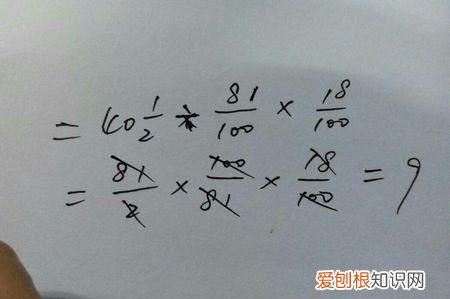 = 40 1/2 ÷ 81/100 × 18/100
= 81/2 × 100/81 × 18/100 = 9
爱刨根知识网